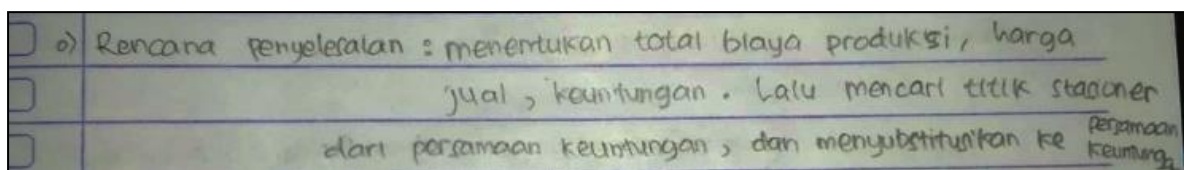 o) Rencana penyelesaian : menentukan total biaya produksi, harga
jual, keuntungan. Lalu mencari titik stasioner
dari persamaan keuntungan, dan menyubstitusikan ke persamaan
keuntunga